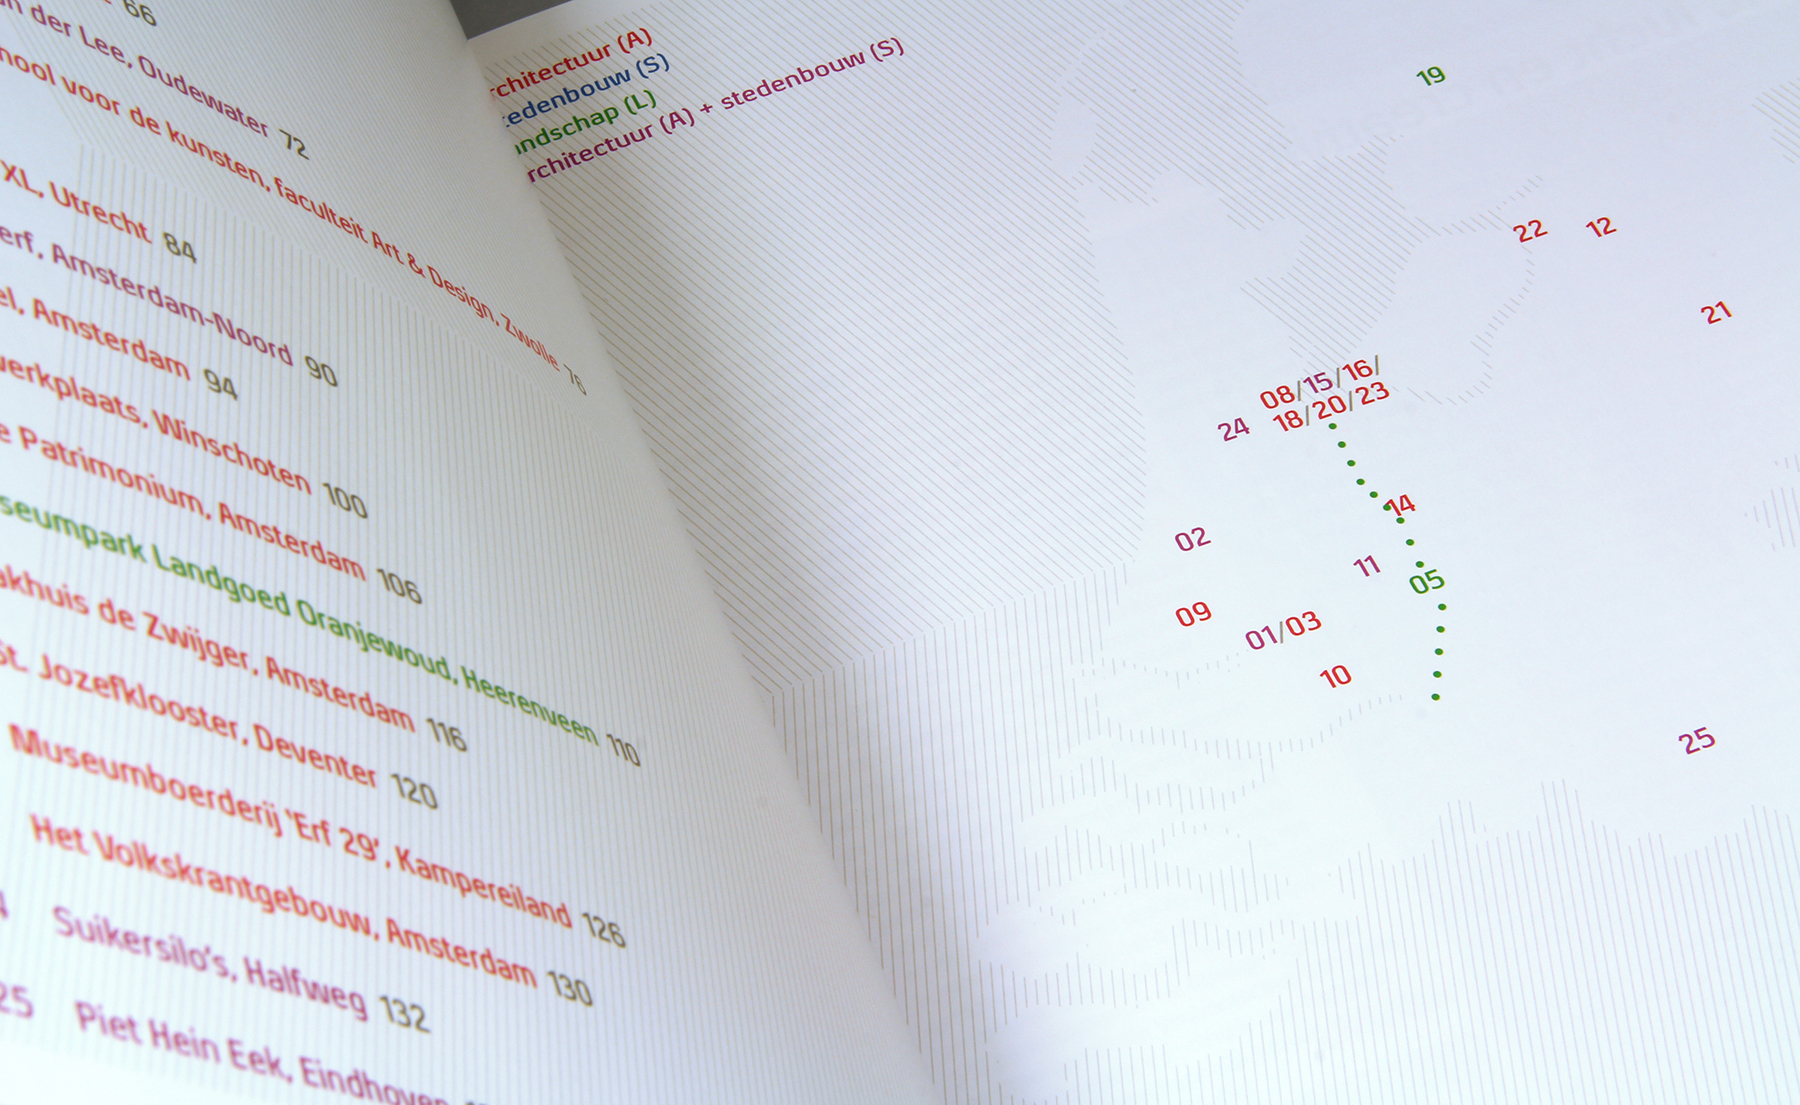 66
der Lee, Oudewater 72
hool voor de kunsten, faculteit Art & Design, Zwolle 76
XL, Utrecht 84
erf, Amsterdam-Noord 90
el, Amsterdam 94
werkplaats, Winschoten 100
e Patrimonium, Amsterdam 106
seumpark Landgoed Oranjewoud, Heerenveen 110
akhuis de Zwijger, Amsterdam 116
St. Jozefklooster, Deventer 120
Museumboerderij 'Erf 29', Kampereiland 126
Het Volkskrantgebouw, Amsterdam 130
4 Suikersilo's, Halfweg 132
25 Piet Hein Eek, Eindhoven
rchitectuur (A)
tedenbouw (S)
andschap (L)
rchitectuur (A) + stedenbouw (S)
19
22 12
21
08/15/16/
18/20/23
24
14
02
11
05
09
01/03
10
25